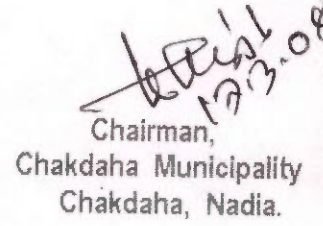 12.3.08
Chairman,
Chakdaha Municipality
Chakdaha, Nadia.